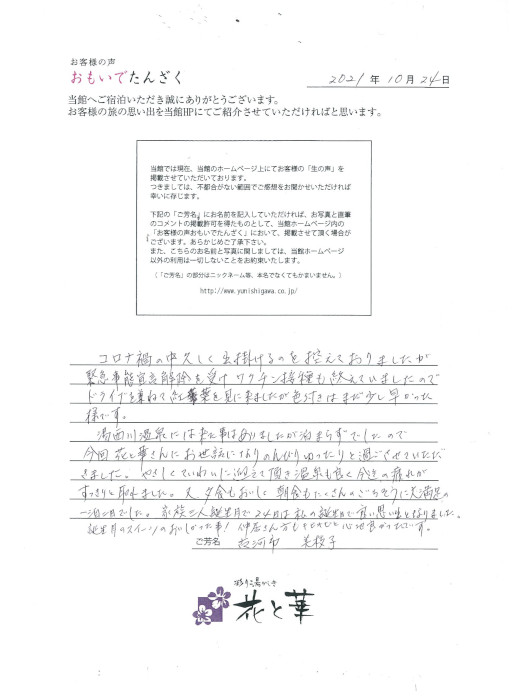 お客様の声
おもいでたんざく
2021年10月24日
当館へご宿泊いただき誠にありがとうございます。
お客様の旅の思い出を当館HPにてご紹介させていただければと思います。
当館では現在、当館のホームページ上にてお客様の「生の声」を
掲載させていただいております。
つきましては、不都合がない範囲でご感想をお聞かせいただければ
幸いに存じます。
下記の「ご芳名」にお名前を記入していただければ、お写真と直筆
のコメントの掲載許可を得たものとして、当館ホームページ内の
「お客様の声おもいでたんざく」において、掲載させて頂く場合が
ございます。あらかじめご了承下さい。
また、こちらのお名前と写真に関しましては、当館ホームページ
以外の利用は一切しないことをお約束いたします。
（「ご芳名」の部分はニックネーム等、本名でなくてもかまいません。）
http://www.yunishigawa.co.jp/
コロナ禍の中久しく出掛けるのを控えておりましたが
緊急事態宣言解除を受けワクチン接種も終えていましたので
ドライブを兼ねて紅葉を見に来ましたが色づきはまだ少し早かった
様です。
湯西川温泉には来た事はありましたが泊まらずでしたので
今回花と華さんにお世話になりのんびりゆったりと過ごさせていただ
きました。やさしくていねいに迎えて頂き温泉も良く今迄の疲れが
すっきりと取れました。又、夕食もおいしく朝食もたくさんのごちそうに大満足の
一泊二日でした。家族三人誕生月で24日は私の誕生日で良い思い出となりました。
誕生月のスイーツのおいしかった事！仲居さん方もとても心地良かったです。
ご芳名 古河市 美枝子
彩り湯かしき
花と華